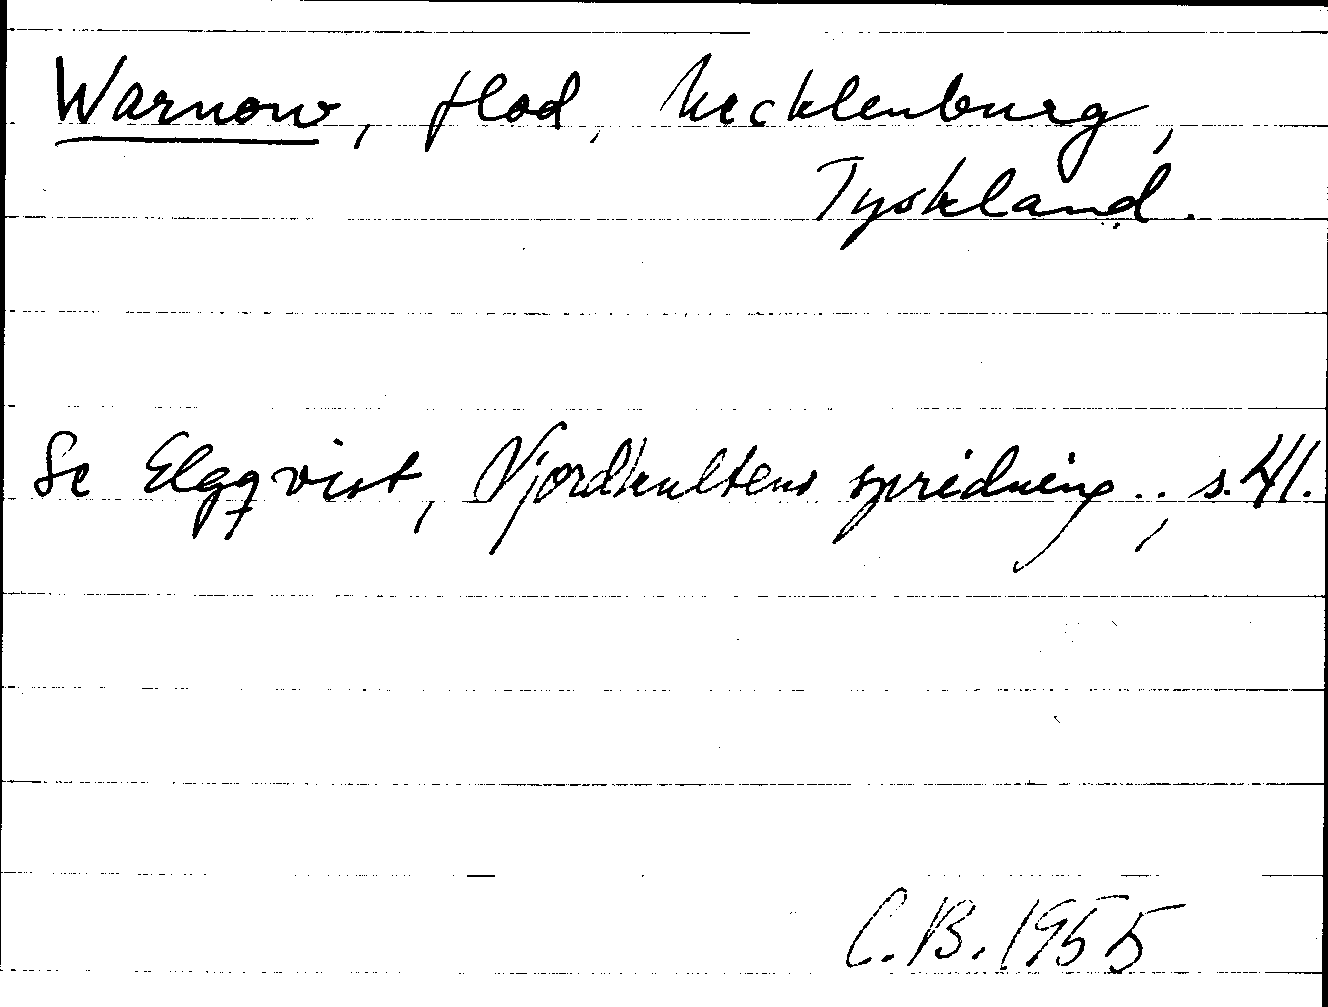 Warnow, flod, Mecklenburg,
Tyskland.
Se Elgqvist, Njordkultens spridning.., s. 41.
C.B. 1955